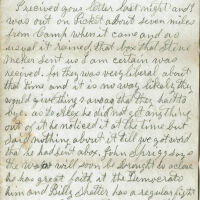 I recived your letter last night and I
was out on Picket about seven miles
from Camp when it came and as
usual it rained, that box that Stine
Acker sent us I am certain was
recived. for they was very liberal about
that time and it is no way likely they
would give things away that they had to
buy. as to Alex he did not get anything
out of it he noticed it at the time but
said nothing about it till we got word
that he had sent also. John Spriggs says
the war will soon be brought to a close
he has great faith in the Democrats
him and Billy Shetter has a regular fight